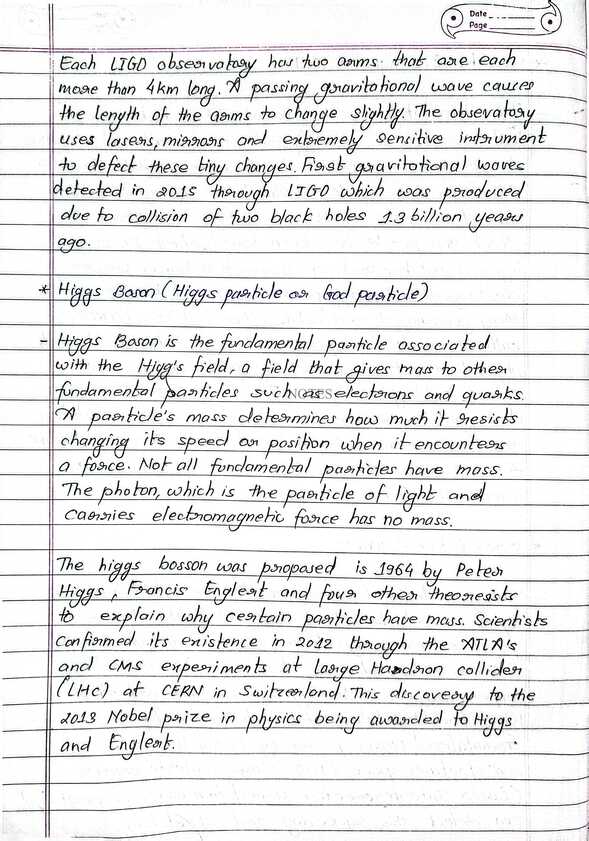 Date
Page
Each LIGO observatory has two arms that are each
more than 4km long. A passing gravitational wave causes
the length of the arms to change slightly. The obsevatory
uses lasers, mirrors and extremely sensitive instrument
to defect these tiny changes. First gravitational waves
detected in 2015 through LIGO which was produced
due to collision of two black holes 1.3 billion years
ago.
* Higgs Boson (Higgs particle or God particle)
- Higgs Boson is the fundamental particle associated
with the Higg's field, a field that gives mass to other
fundamental particles such as electrons and quarks.
NOTES
A particle's mass determines how much it resists
changing its speed or position when it encounters
a force. Not all fundamental particles have mass.
The photon, which is the particle of light and
carries electromagnetic force has no mass.
The higgs bosson was proposed is 1964 by Peter
Higgs, Francis Englert and four other theoresists
to explain why certain particles have mass. Scientists
confirmed its existence in 2012 through the ATLA's
and CMS experiments at large Hadron collider
(LHC) at CERN in Switzerland. This discovery to the
2013 Nobel prize in physics being awarded to Higgs
and Englert.